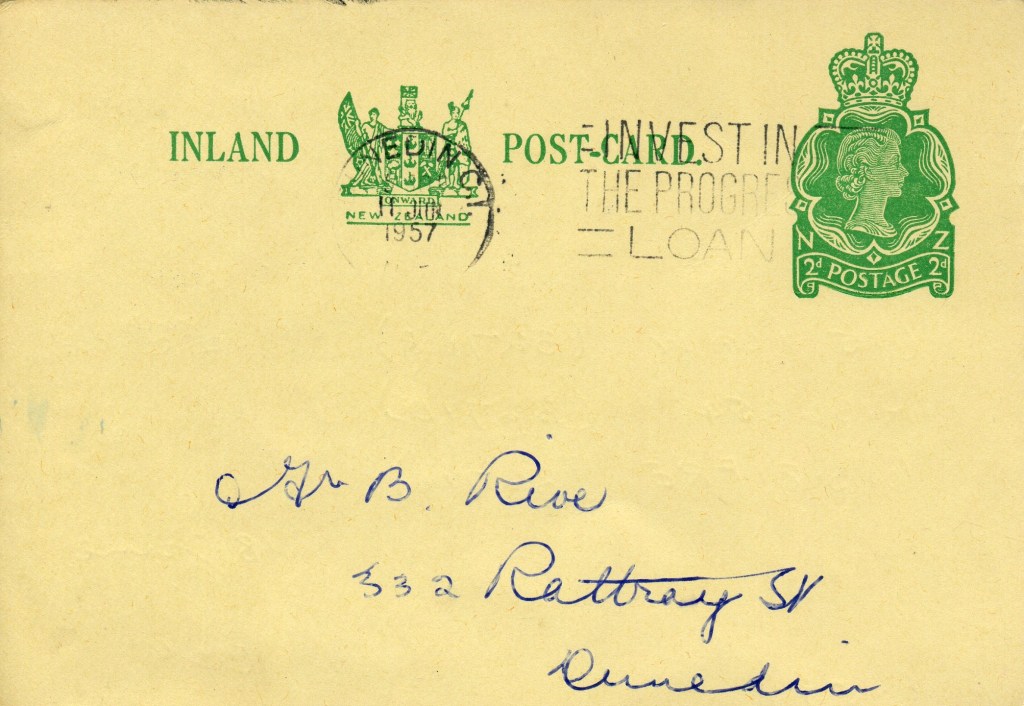 INLAND POST-CARD.
NEDIN C
ONWARD
11 JU
NEW ZEALAND
1957
INVEST IN
THE PROGRE
LOAN
N Z
2d POSTAGE 2d
Mr B. Rive
332 Rattray St
Dunedin